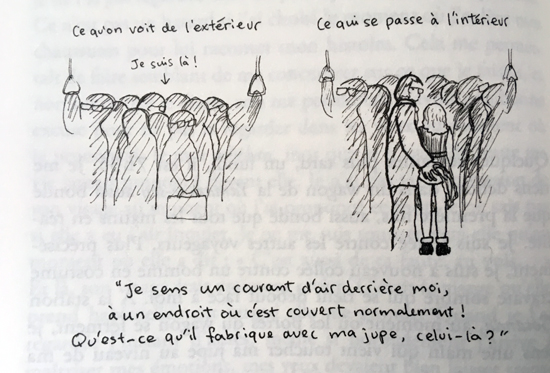 Ce qu'on voit de l'extérieur
Je suis là !
Ce qui se passe à l'intérieur
"Je sens un courant d'air derrière moi,
à un endroit où c'est couvert normalement !
Qu'est-ce qu'il fabrique avec ma jupe, celui-là ?"